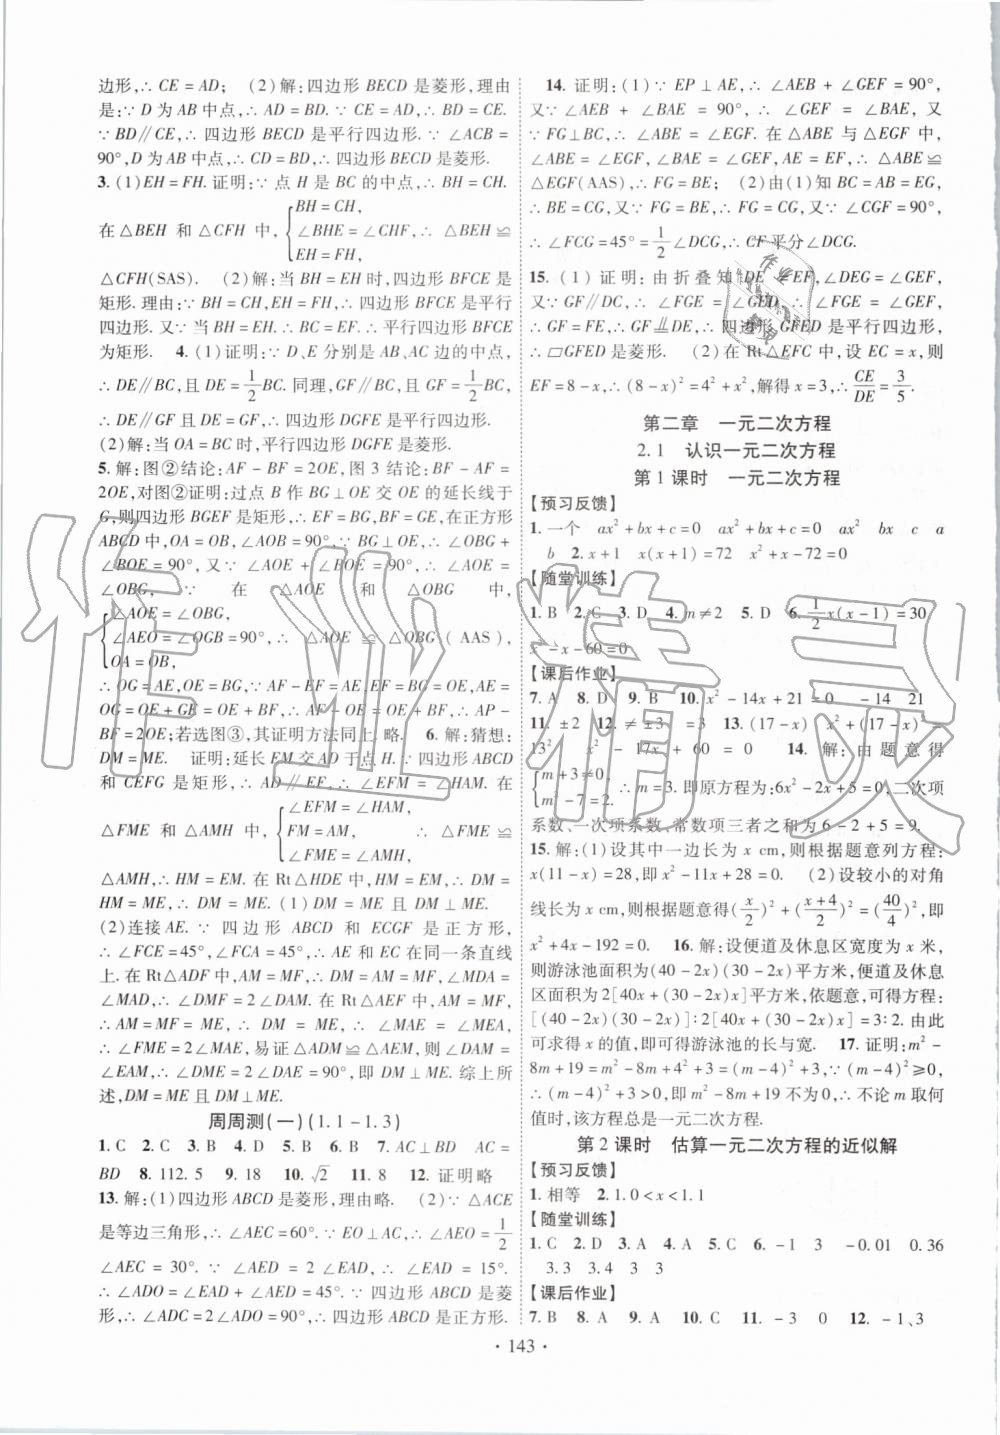 边形,∴ CE = AD; (2)解:四边形 BECD 是菱形,理由
是:∵ D 为 AB 中点,∴ AD = BD. ∵ CE = AD,∴ BD = CE.
∵ BD∥CE,∴ 四边形 BECD 是平行四边形. ∵ ∠ACB =
90°,D 为 AB 中点,∴ CD = BD,∴ 四边形 BECD 是菱形.
3. (1)EH = FH. 证明:∵ 点 H 是 BC 的中点,∴ BH = CH.
在△BEH 和△CFH 中, { BH = CH, ∠BHE = ∠CHF, EH = FH, ∴ △BEH ≌
△CFH(SAS). (2)解:当 BH = EH 时,四边形 BFCE 是
矩形. 理由:∵ BH = CH,EH = FH,∴ 四边形 BFCE 是平行
四边形. 又∵ 当 BH = EH,∴ BC = EF,∴ 平行四边形 BFCE
为矩形. 4. (1)证明:∵ D、E 分别是 AB、AC 边的中点,
∴ DE∥BC,且 DE = 1/2 BC. 同理,GF∥BC,且 GF = 1/2 BC,
∴ DE∥GF 且 DE = GF,∴ 四边形 DGFE 是平行四边形.
(2)解:当 OA = BC 时,平行四边形 DGFE 是菱形.
5. 解:图②结论:AF - BF = 2OE,图 3 结论:BF - AF =
2OE,对图②证明:过点 B 作 BG⊥OE 交 OE 的延长线于
G,则四边形 BGEF 是矩形,∴ EF = BG,BF = GE,在正方形
ABCD 中,OA = OB,∠AOB = 90°,∵ BG⊥OE,∴ ∠OBG +
∠BOE = 90°,又∵ ∠AOE + ∠BOE = 90°,∴ ∠AOE =
∠OBG, ∵ 在 △AOE 和 △OBG 中,
{ ∠AOE = ∠OBG, ∠AEO = ∠OGB = 90°, OA = OB, ∴ △AOE ≌ △OBG ( AAS ),
∴ OG = AE,OE = BG,∵ AF - EF = AE,EF = BG = OE,AE =
OG = OE + GE = OE + BF,∴ AF - OE = OE + BF,∴ AP -
BF = 2OE;若选图③,其证明方法同上. 略. 6. 解:猜想:
DM = ME. 证明:延长 EM 交 AD 于点 H. ∵ 四边形 ABCD
和 CEFG 是矩形,∴ AD∥EF,∴ ∠EFM = ∠HAM. 在
△FME 和 △AMH 中, { ∠EFM = ∠HAM, FM = AM, ∠FME = ∠AMH, ∴ △FME ≌
△AMH,∴ HM = EM. 在 Rt△HDE 中,HM = EM,∴ DM =
HM = ME,∴ DM = ME. (1)DM = ME 且 DM⊥ME.
(2)连接 AE. ∵ 四边形 ABCD 和 ECGF 是正方形,
∴ ∠FCE = 45°,∠FCA = 45°,∴ AE 和 EC 在同一条直线
上. 在 Rt△ADF 中,AM = MF,∴ DM = AM = MF,∠MDA =
∠MAD,∴ ∠DMF = 2∠DAM. 在 Rt△AEF 中,AM = MF,
∴ AM = MF = ME,∴ DM = ME,∵ ∠MAE = ∠MEA,
∴ ∠FME = 2∠MAE,易证△ADM≌△AEM,则∠DAM =
∠EAM,∴ ∠DME = 2∠DAE = 90°,即 DM⊥ME. 综上所
述,DM = ME 且 DM⊥ME.
周周测(一)(1.1 - 1.3)
1. C 2. C 3. B 4. D 5. B 6. B 7. AC⊥BD AC =
BD 8. 112.5 9. 18 10. √2 11. 8 12. 证明略
13. 解:(1)四边形 ABCD 是菱形,理由略. (2)∵ △ACE
是等边三角形,∴ ∠AEC = 60°. ∵ EO⊥AC,∴ ∠AEO = 1/2
∠AEC = 30°. ∵ ∠AED = 2∠EAD,∴ ∠EAD = 15°.
∴ ∠ADO = ∠EAD + ∠AED = 45°. ∵ 四边形 ABCD 是菱
形,∴ ∠ADC = 2∠ADO = 90°,∴ 四边形 ABCD 是正方形.
14. 证明:(1)∵ EP⊥AE,∴ ∠AEB + ∠GEF = 90°,
又∵ ∠AEB + ∠BAE = 90°,∴ ∠GEF = ∠BAE,又
∵ FG⊥BC,∴ ∠ABE = ∠EGF. 在△ABE 与△EGF 中,
∠ABE = ∠EGF,∠BAE = ∠GEF,AE = EF,∴ △ABE≌
△EGF(AAS),∴ FG = BE; (2)由(1)知 BC = AB = EG,
∴ BE = CG,又∵ FG = BE,∴ FG = CG,又∵ ∠CGF = 90°,
∴ ∠FCG = 45° = 1/2 ∠DCG,∴ CF 平分∠DCG.
15. (1)证明:由折叠知 DE = EF,∠DEG = ∠GEF,
又∵ GF∥DC,∴ ∠FGE = ∠GED,∴ ∠FGE = ∠GEF,
∴ GF = FE,∴ GF ∥= DE,∴ 四边形 GFED 是平行四边形,
∴ ▱GFED 是菱形. (2)在 Rt△EFC 中,设 EC = x,则
EF = 8 - x,∴ (8 - x)² = 4² + x²,解得 x = 3,∴ CE/DE = 3/5.
第二章 一元二次方程
2.1 认识一元二次方程
第 1 课时 一元二次方程
【预习反馈】
1. 一个 ax² + bx + c = 0 ax² + bx + c = 0 ax² bx c a
b 2. x + 1 x(x + 1) = 72 x² + x - 72 = 0
【随堂训练】
1. B 2. C 3. D 4. m≠2 5. D 6. 1/2 x(x - 1) = 30
x² - x - 60 = 0
【课后作业】
7. A 8. D 9. B 10. x² - 14x + 21 = 0 -14 21
11. ±2 12. ≠±3 = 3 13. (17 - x) x² + (17 - x)² =
13² x² - 17x + 60 = 0 14. 解:由题意得
{ m + 3≠0, m² - 7 = 2. ∴ m = 3. 即原方程为:6x² - 2x + 5 = 0,二次项
系数、一次项系数、常数项三者之和为 6 - 2 + 5 = 9.
15. 解:(1)设其中一边长为 x cm,则根据题意列方程:
x(11 - x) = 28,即 x² - 11x + 28 = 0. (2)设较小的对角
线长为 x cm,则根据题意得(x/2)² + ((x+4)/2)² = (40/4)²,即
x² + 4x - 192 = 0. 16. 解:设便道及休息区宽度为 x 米,
则游泳池面积为(40 - 2x)(30 - 2x)平方米,便道及休息
区面积为 2[40x + (30 - 2x)x]平方米,依题意,可得方程:
[(40 - 2x)(30 - 2x)]∶2[40x + (30 - 2x)x] = 3∶2. 由此
可求得 x 的值,即可得游泳池的长与宽. 17. 证明:m² -
8m + 19 = m² - 8m + 4² + 3 = (m - 4)² + 3,∵ (m - 4)²≥0,
∴ (m - 4)² + 3>0,即 m² - 8m + 19≠0,∴ 不论 m 取何
值时,该方程总是一元二次方程.
第 2 课时 估算一元二次方程的近似解
【预习反馈】
1. 相等 2. 1.0<x<1.1
【随堂训练】
1. C 2. D 3. A 4. A 5. C 6. -1 3 -0.01 0.36
3.3 3.4 3 3
【课后作业】
7. B 8. A 9. A 10. C 11. -3 0 12. -1、3
· 143 ·
作业精灵